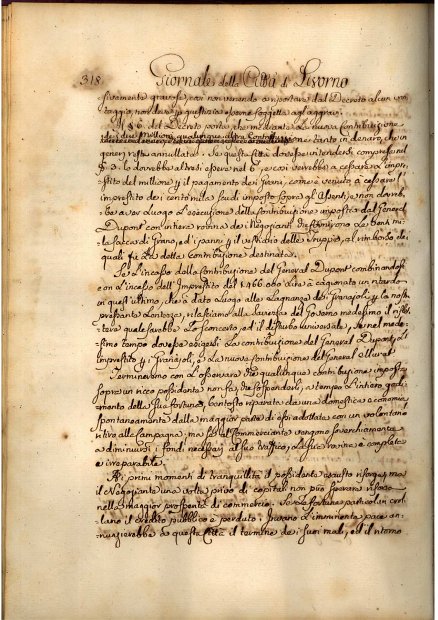 318 Giornale della Città di Livorno
sivamente gravose, così non venendo a riportare dal Decreto alcun van
taggio, non deve in giustizia esserne soggetta agl'aggravi.
Il § 6. del Decreto porta, che mediante la nuova Contribuzione
dei due Millioni qualunque altra Contribuzione tanto in denaro, che in
generi resta annullata. Se questa Città dovesse intendersi compresa nel
§. 2. lo dovrebbe altresì essere nel 6, e così verrebbe a cessare l'impre
stito del millione, e il pagamento dei Grani, come è venuto a cessare l'
imprestito dei centomila scudi imposto sopra gl'Assenti, e non dovreb
be aver luogo l'esecuzione della Contribuzione imposta dal General
Dupont con intiera rovina dei Negozianti per venti mi
la sacca di Grano, ed i panni, e il vestiario delle truppe, al rimborso dei
quali fu destinata.
Se l'incasso della Contribuzione del General Dupont combinandosi
con l'incasso dell'Imprestito del 1.466.000 Lire à cagionato un ritardo
in quest'ultimo, che à dato luogo alle Lagnanze dei Francesi, e la nostra
pressante Lentezza, rilasciamo alla saviezza del Governo medesimo il riflet
tere quale sarebbe lo sconcerto, ed il disturbo universale, se nel mede
simo tempo dovesse esigersi la Contribuzione del General Dupont, l'
Imprestito, e i Grani, e la nuova Contribuzione del General
Termineremo con l'osservare che qualunque contribuzione imposta
sopra un ricco possidente non fà, che sospenderli, a tempo l'intiero godi
mento della sua fortuna, ben tosto riparata da una domestica economia
spontaneamente dalla maggior parte di essi adottata con un volontario
ritiro alla Campagna, ma se al Commerciante vengono soverchiamente
a diminuirsi i fondi necessari al suo traffico, la sua rovina è completa
e irreparabile.
Ai primi momenti di tranquillità il possidente esausto risorge, ma
il Negoziante una volta privo di capitali non può sperare risorse
nella maggior prosperità di commercio. Se le fortune particolari crol
lano il credito pubblico è perduto. Invano l'imminente pace an
nunzierebbe a questa Città il termine dei suoi mali, ed il ritorno